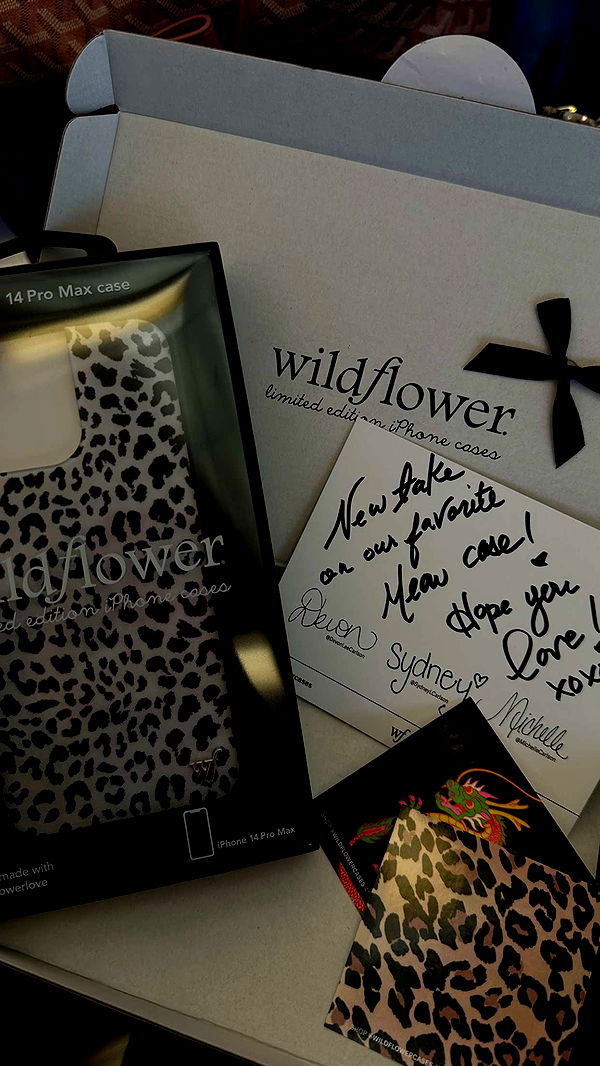 14 Pro Max case
wildflower
limited edition iPhone cases
ldflower
ed edition iPhone cases
wf
iPhone 14 Pro Max
made with
owerlove
New take
on our favorite
Meow case!
Hope you
love!
xoxo
Devon
@DevonLeeCarlson
Sydney
@SydneyLCarlson
Michelle
@MichelleCarlson
cases
wf
SHOP @WILDFLOWERCASES
SHOP @WILDFLOWERCASES